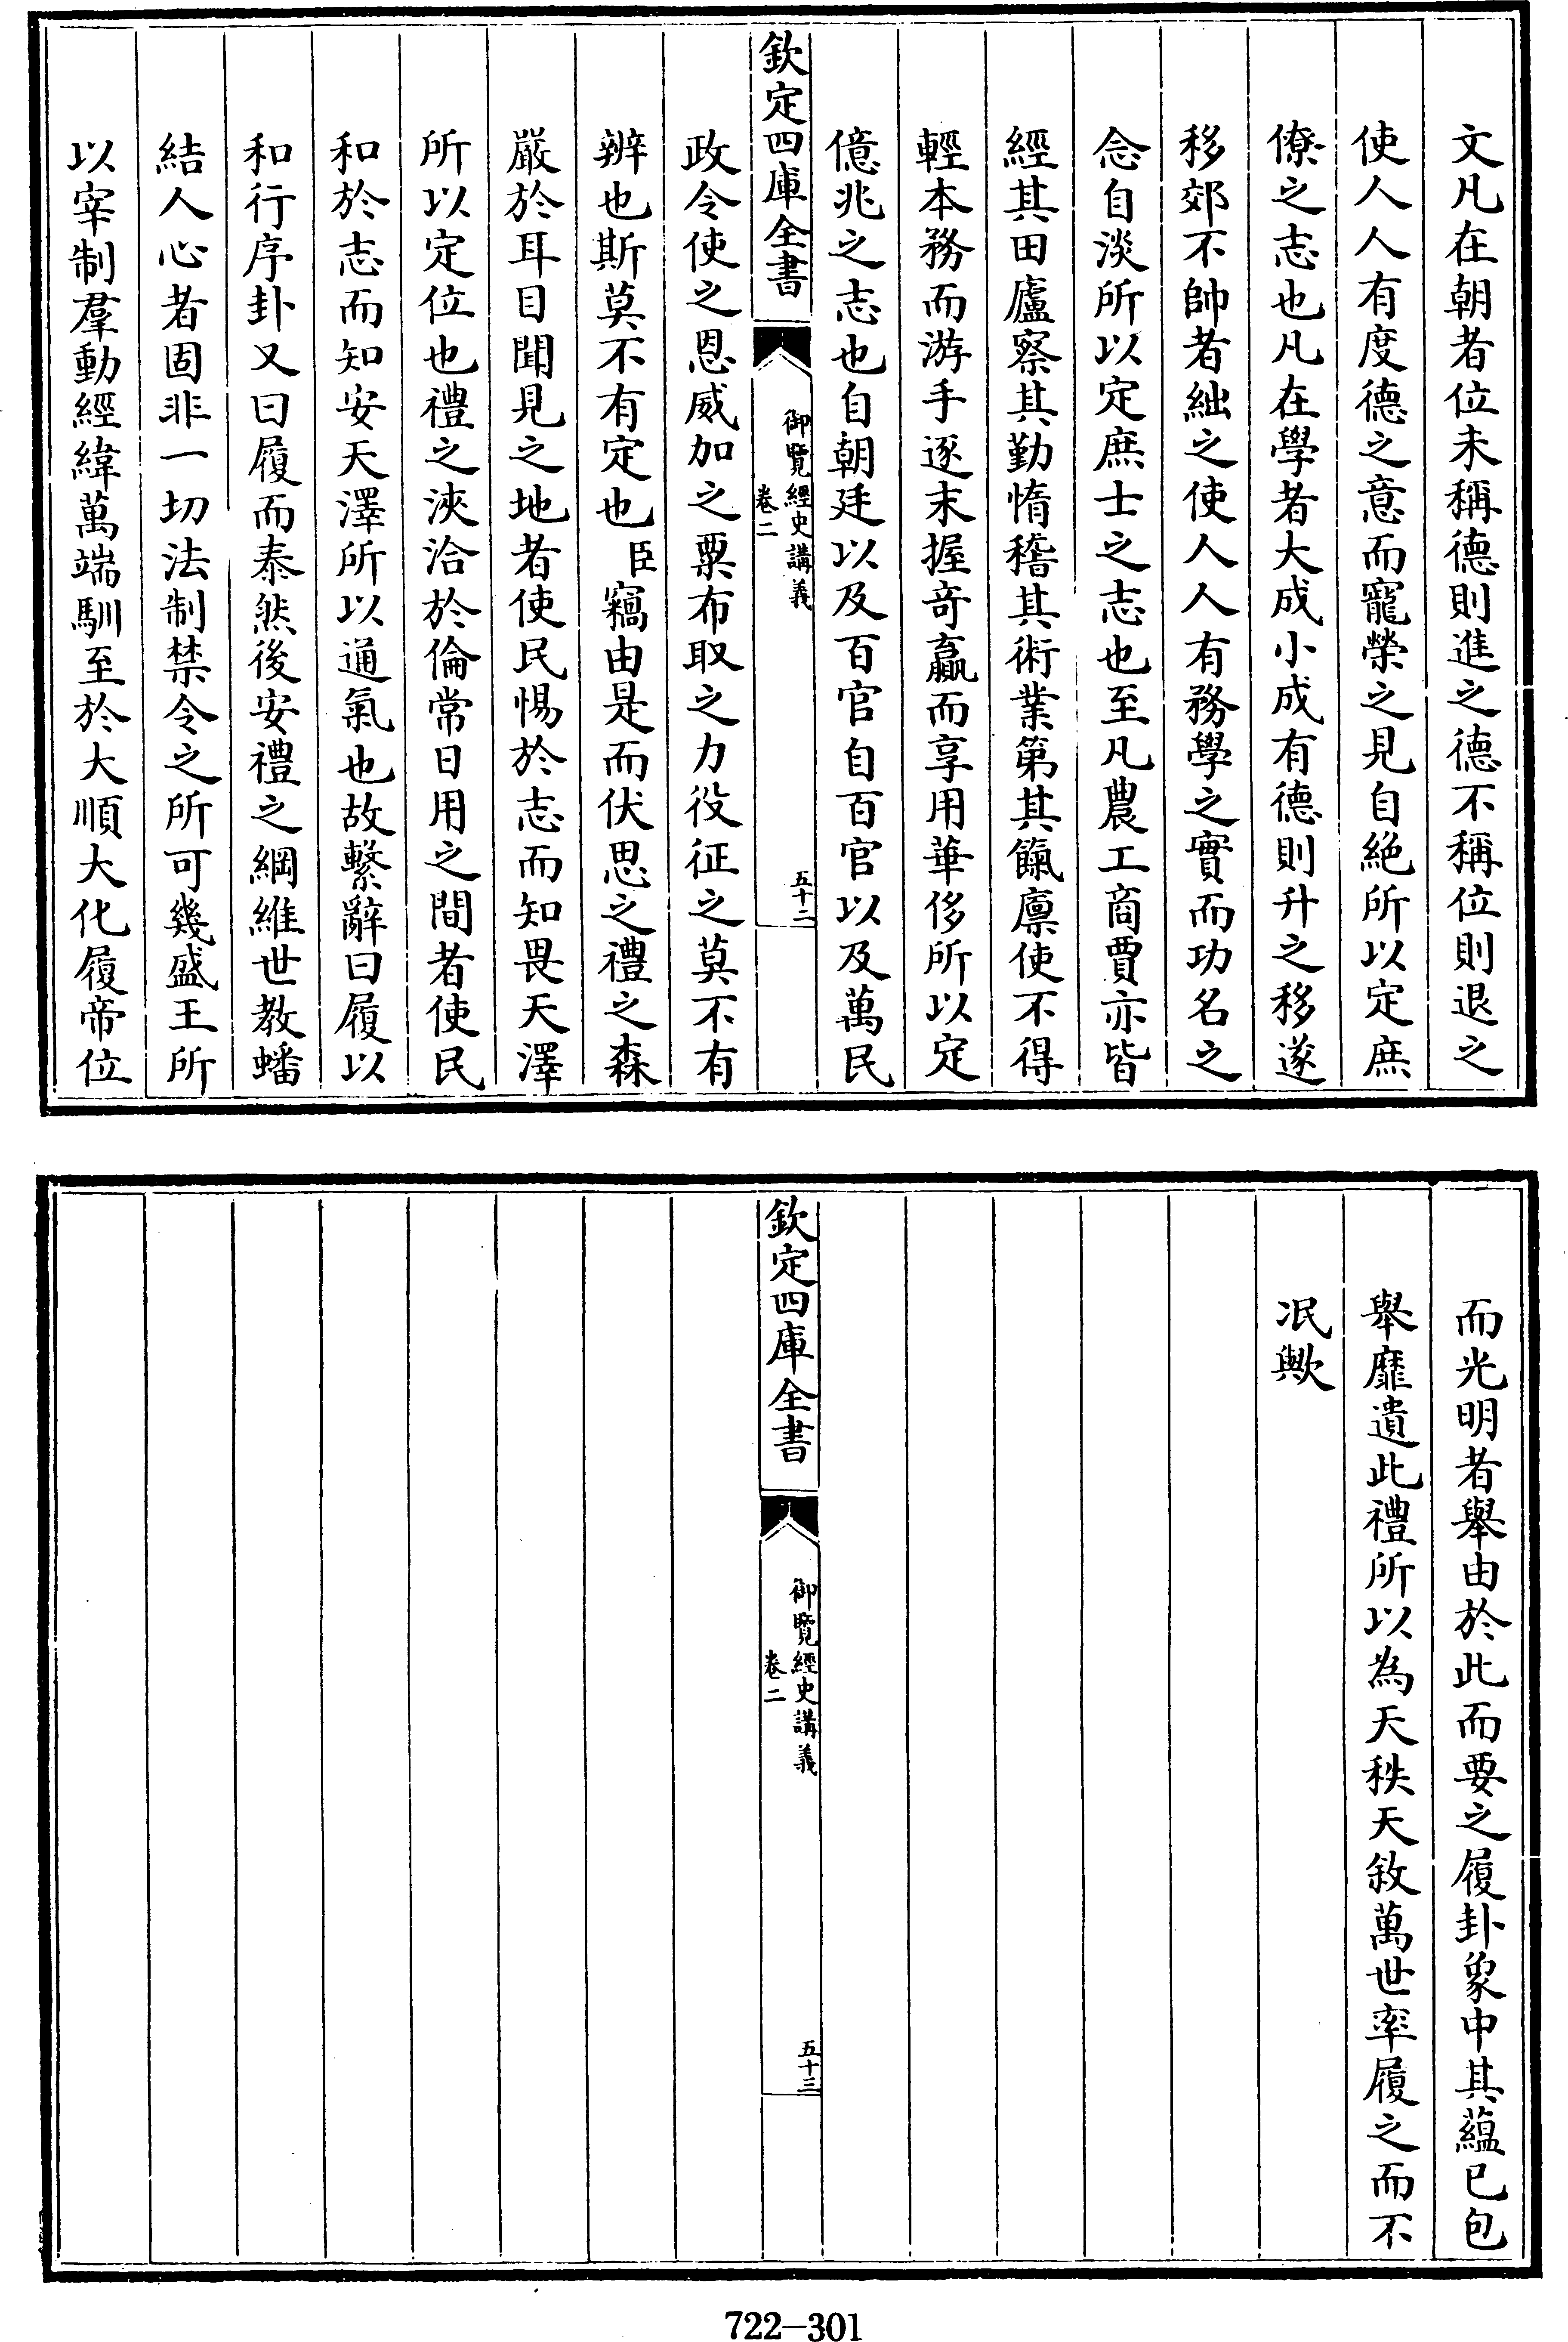 文凡在朝者位未稱德則進之德不稱位則退之
使人人有度德之意而寵榮之見自絕所以定庶
僚之志也凡在學者大成小成有德則升之移遂
移郊不帥者絀之使人人有務學之實而功名之
念自淡所以定庶士之志也至凡農工商賈亦皆
經其田廬察其勤惰稽其術業第其餼廪使不得
輕本務而游手逐末握竒贏而享用華侈所以定
億兆之志也自朝廷以及百官自百官以及萬民
欽定四庫全書
御覽經史講義
卷二
五十二
政令使之恩威加之粟布取之力役征之莫不有
辨也斯莫不有定也臣竊由是而伏思之禮之森
嚴於耳目聞見之地者使民惕於志而知畏天澤
所以定位也禮之浹洽於倫常日用之間者使民
和於志而知安天澤所以通氣也故繫辭曰履以
和行序卦又曰履而泰然後安禮之綱維世教蟠
結人心者固非一切法制禁令之所可幾盛王所
以宰制羣動經緯萬端馴至於大順大化履帝位
而光明者舉由於此而要之履卦象中其蘊已包
舉靡遺此禮所以為天秩天敘萬世率履之而不
泯歟
欽定四庫全書
御覽經史講義
卷二
五十三
722-301